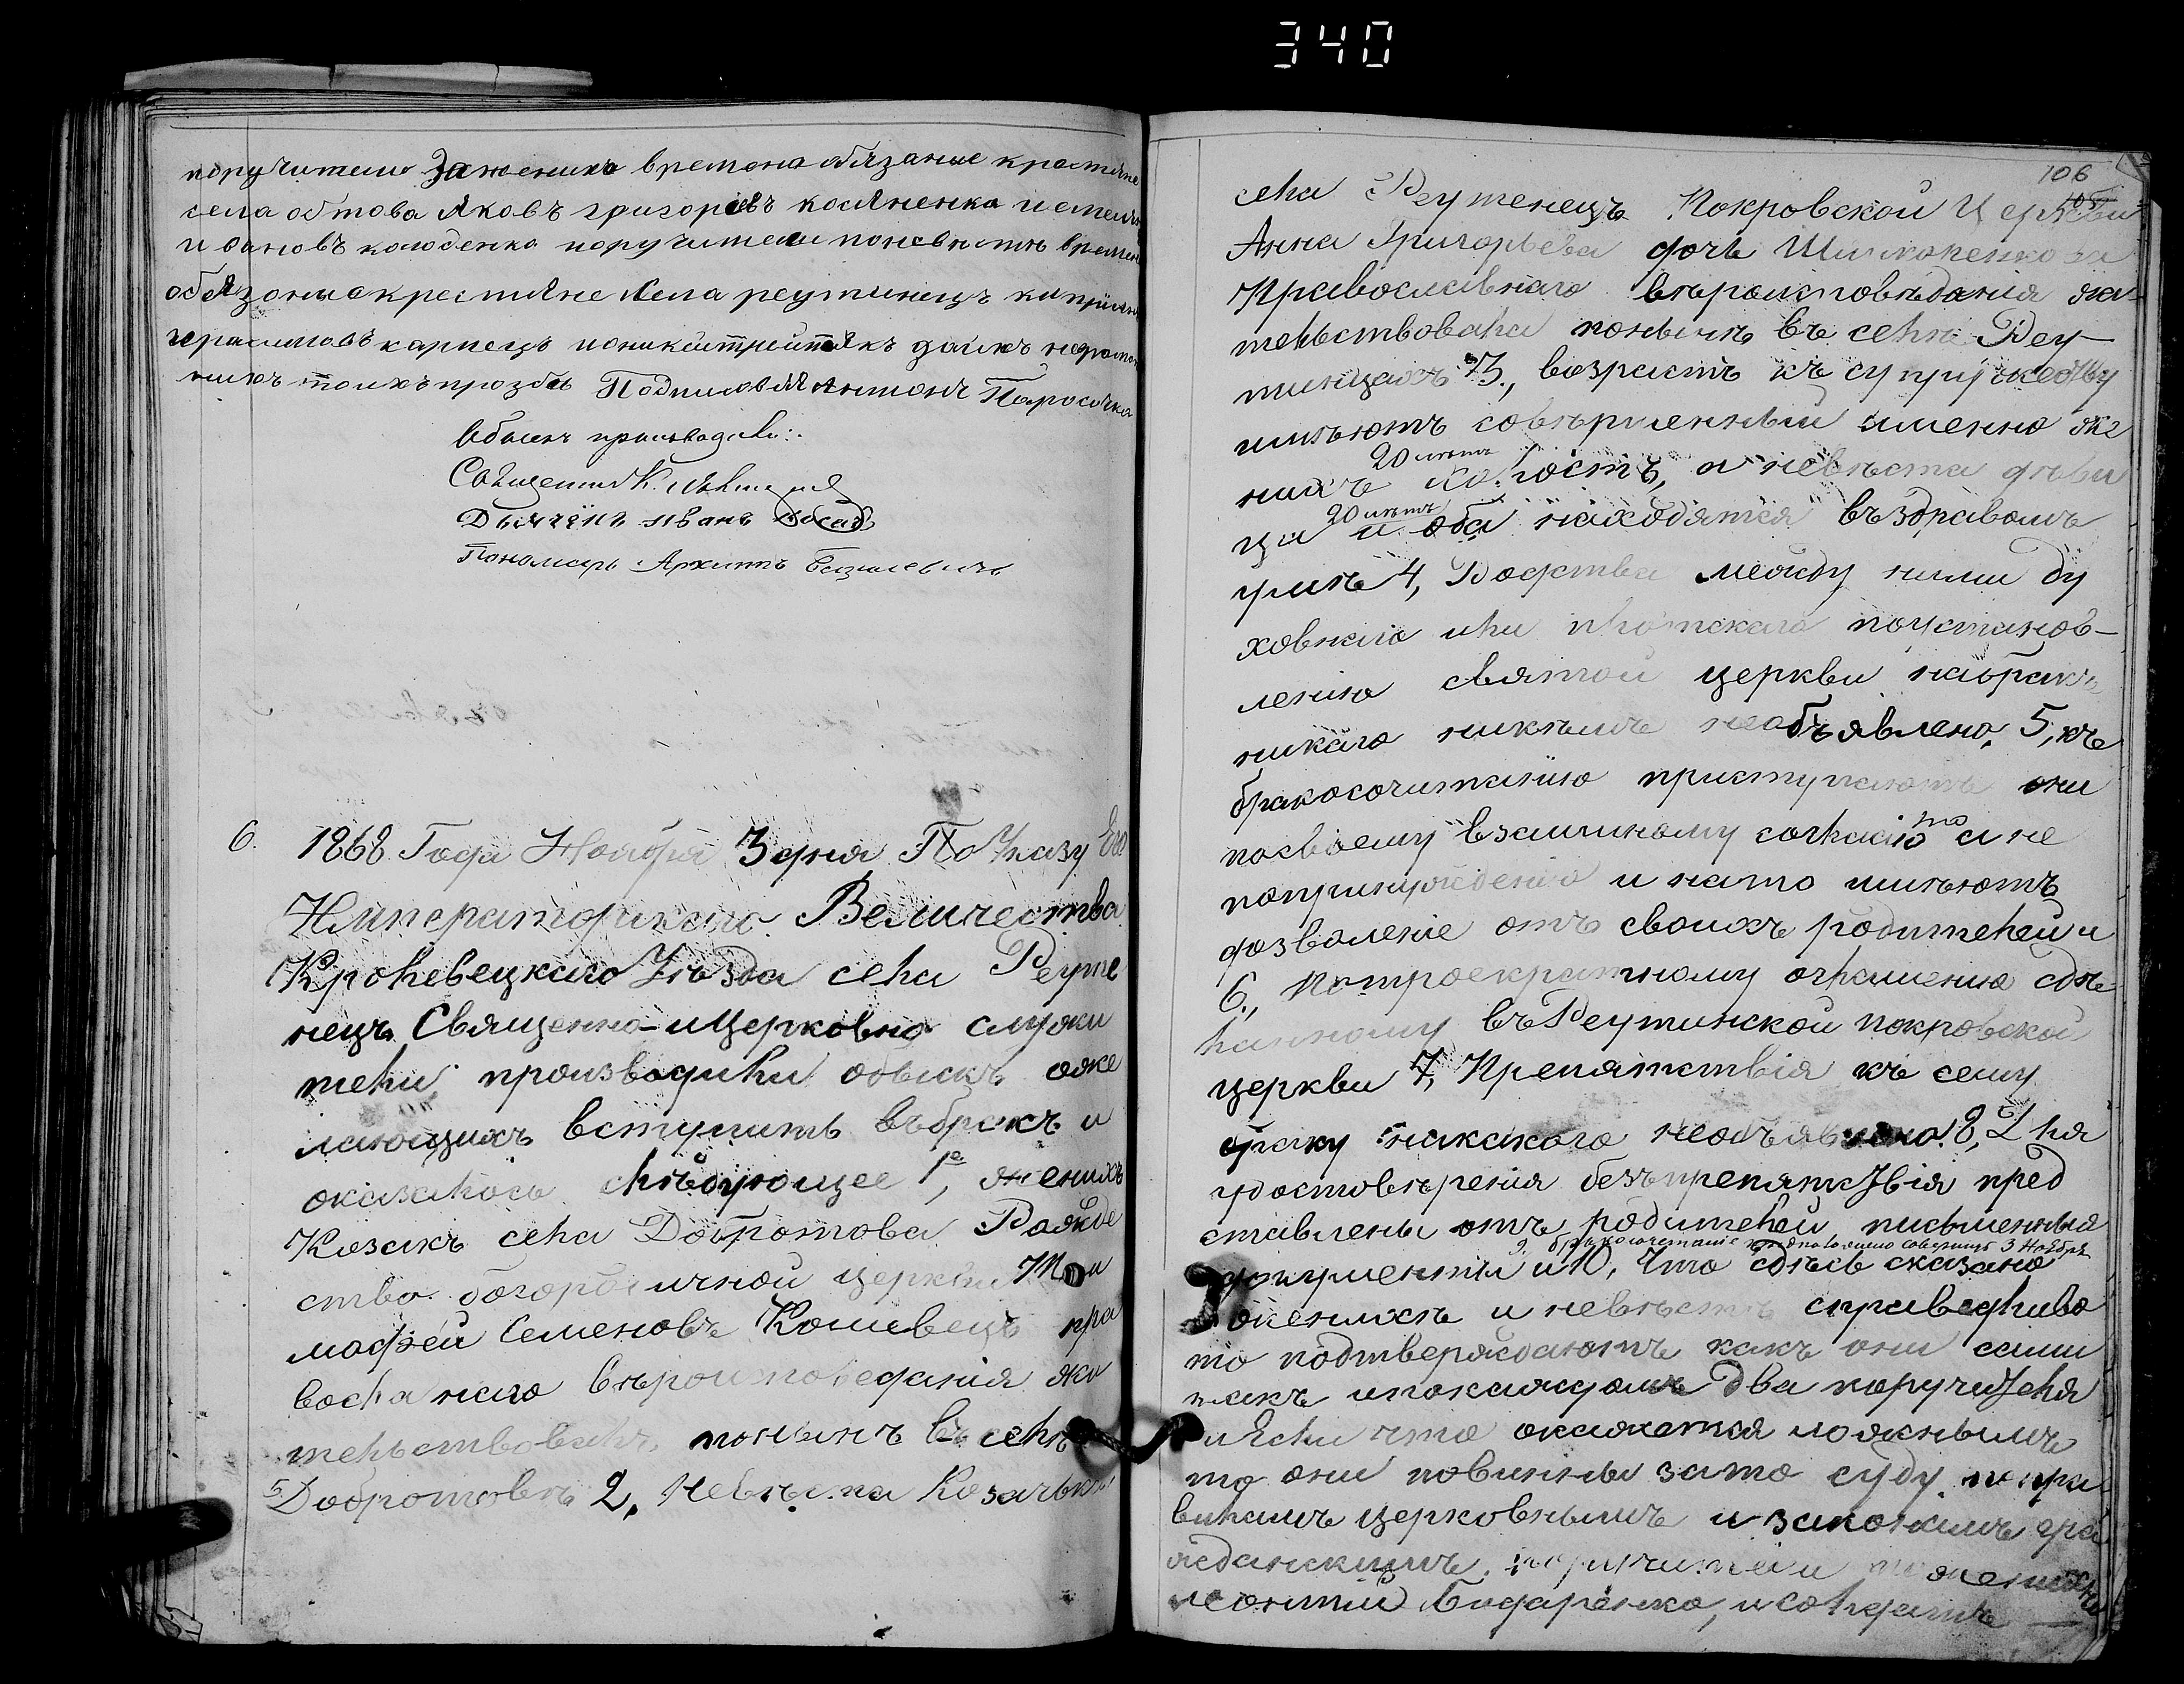 340
поручители Зажениха времена обязаные крестяне
села обтова Яковъ григоревъ
и поручители поневисте времен
обязоные крестяне Села реутинецъ
карпецъ
нихъ Подписовая Антонъ Паросочка
Обыскъ производили:
Священник
Дьячекъ иванъ
Пономарь Архипъ Базилевичъ
6. 1868 Года Ноября 3 дня По Указу Его
Императорскаго Величества
Кролевецкаго Уезда села Реуте
нецъ Священно-и Церковно служи
тели производили обыскъ о же
лающихъ вступить въ бракъ и
оказалось следующее 1е, женихъ
Козакъ села Добротова Рожде
ство богородичной церкви Ти
мофѣй Семеновъ Кошевецъ пра
вославнаго вѣроисповеданія жи
тельствовалъ понынѣ въ селѣ
Добротовѣ 2, Невѣста Козачья
106
села Реутенецъ Покровской Церкви
Анна Григорьева дочь
Православнаго вѣроисповѣданія жи
тельствовала понынѣ въ селѣ Реу
тинцахъ 3., возрастъ къ супружеству
имѣютъ совѣршенный именно же
20 лѣтъ
нихъ холостъ, а невѣста дѣви
20 лѣтъ
ца и оба находятся въ здравомъ
умѣ 4, Родства между ними ду
ховнаго или плотскаго поустанов-
ленію святой церкви набракъ
никаго никѣмъ необъявлено, 5, къ
бракосочитанію приступаютъ они
посвоему взаимному согласію а не
попринужденію и нато имѣютъ
дозволеніе отъ своихъ родителей и
6., Потроекратному оглашенію сдѣ
ланному въ Реутинской покровской
церкви 7, Препятствія къ сему
браку никакого необъявлено. 8, Для
удостовѣренія безъпрепятствія пред
ставлены отъ родителей письменныя
9, бракосочетаніе предположено совершить 3 Ноября
документы и 10, Что здѣсь сказано
о женихѣ и невѣстѣ справедливо
то подтверждаютъ какъ они сами
такъ и покаждомъ два поручителя
и Если что окажется ложнымъ
то они повинны зато суду по пра
виламъ церковнымъ и законамъ гра
жданскимъ. поручители по женихѣ
леонтій Бидаренко, и